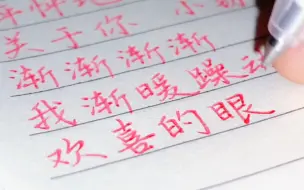 关于你 小
渐渐渐渐
我渐暖躁
欢喜的眼